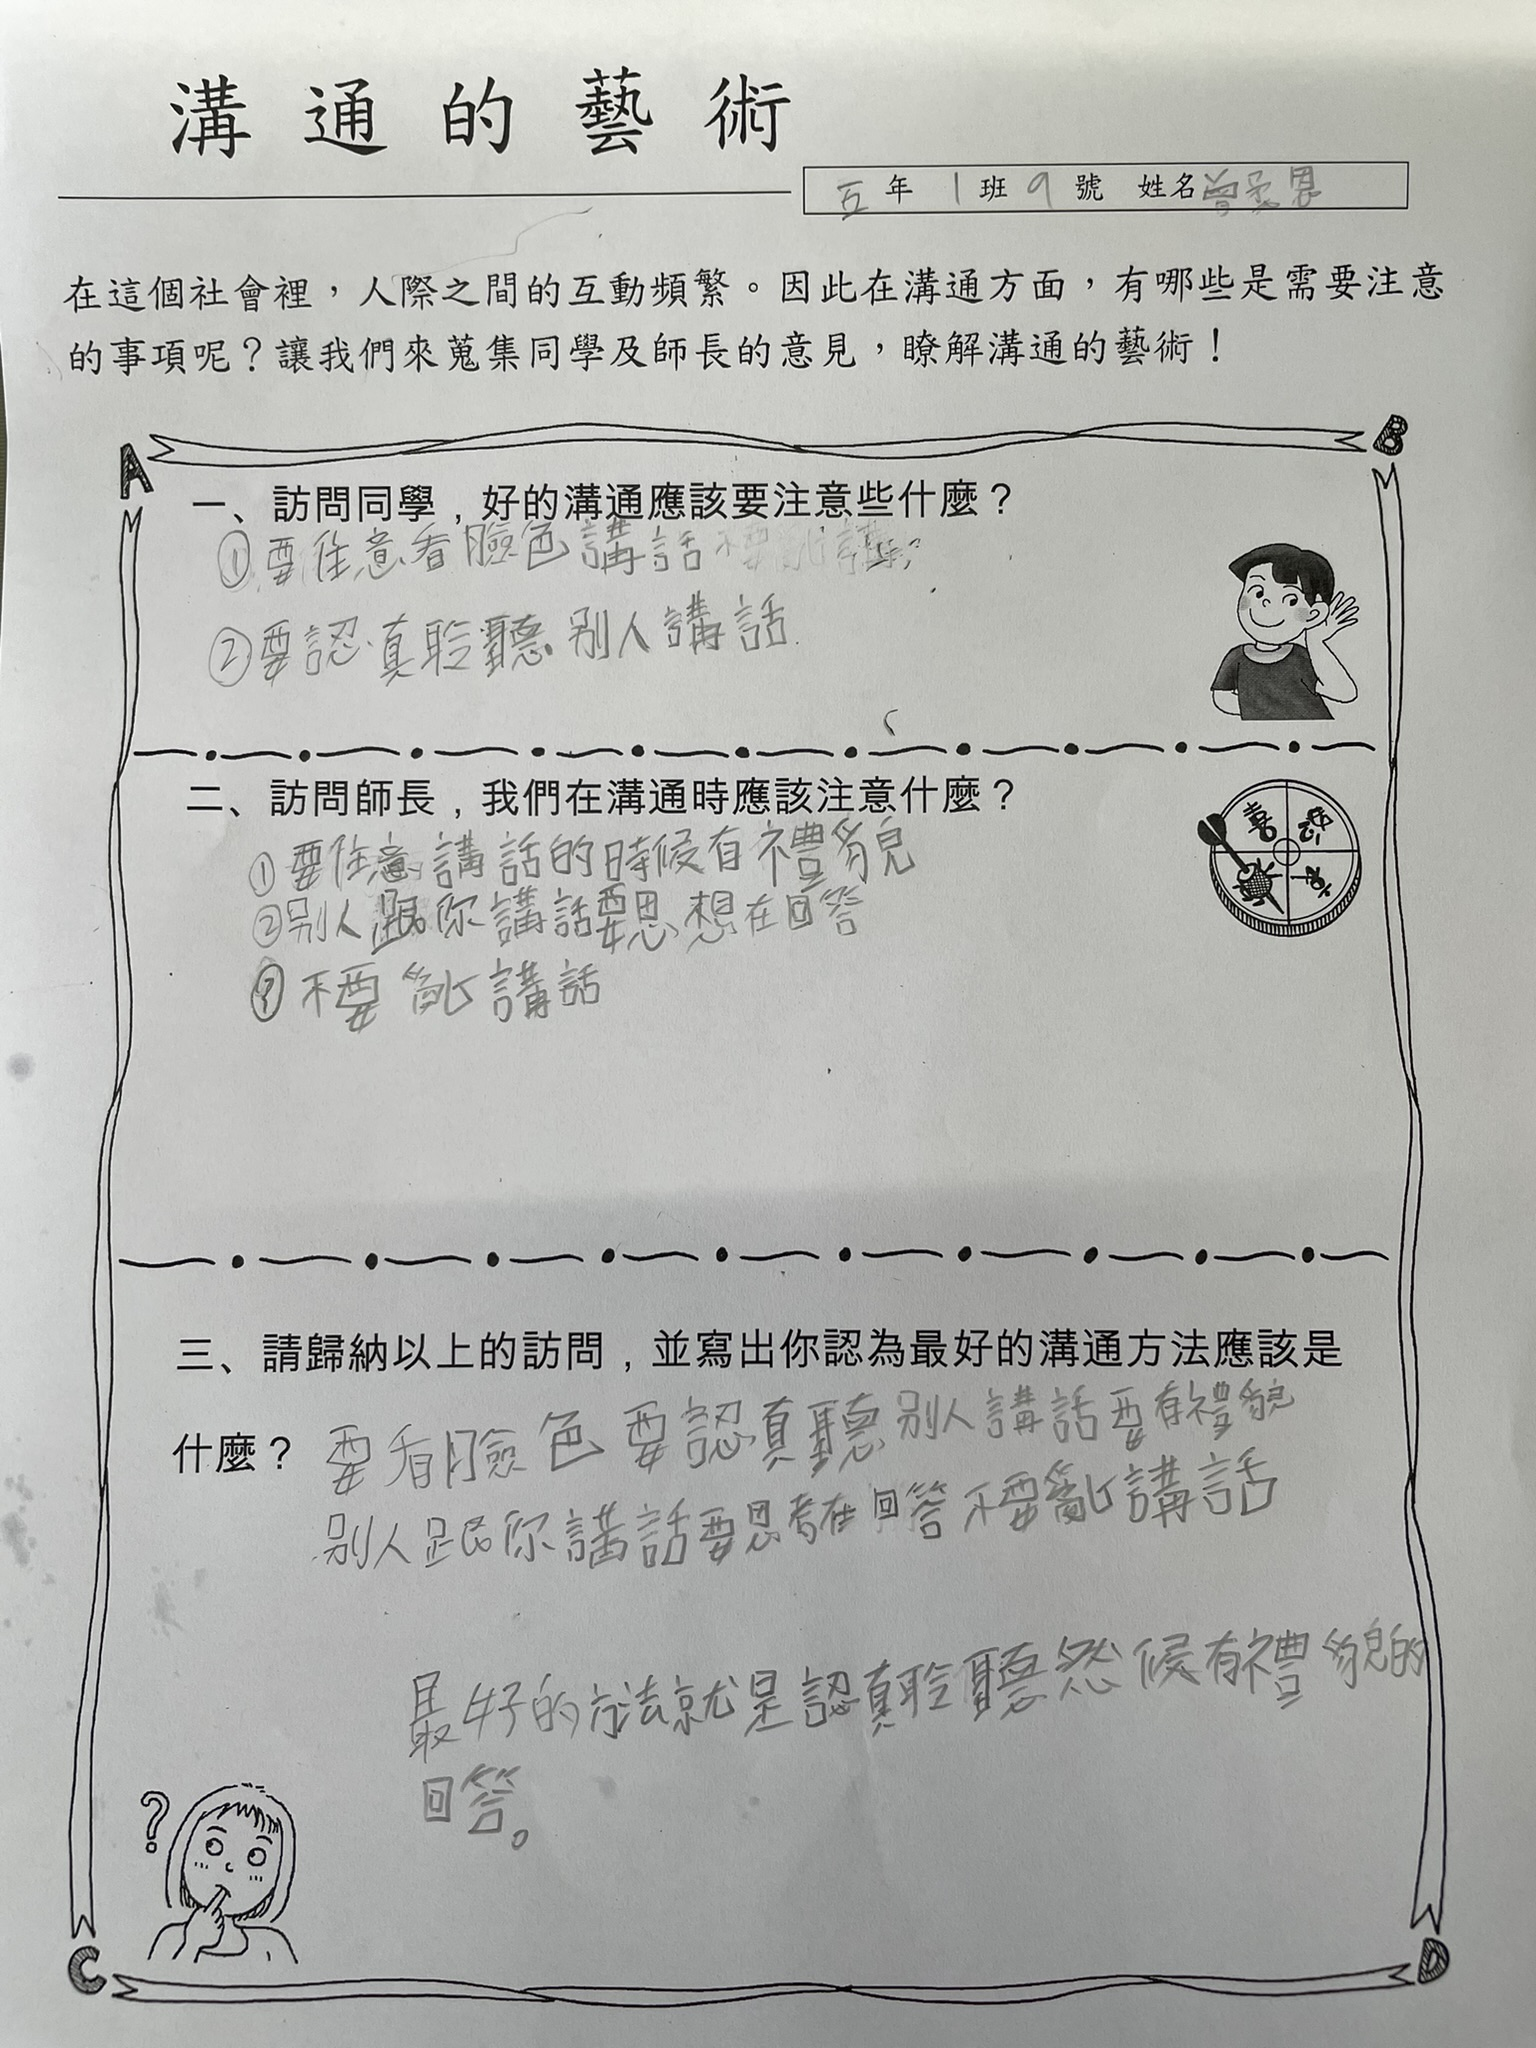 溝通的藝術
五年1班9號 姓名曾柔恩
在這個社會裡，人際之間的互動頻繁。因此在溝通方面，有哪些是需要注意
的事項呢？讓我們來蒐集同學及師長的意見，瞭解溝通的藝術！
A
B
一、訪問同學，好的溝通應該要注意些什麼？
①要住意看臉色講話不要亂講
②要認真聆聽別人講話
二、訪問師長，我們在溝通時應該注意什麼？
喜 怒
樂 哀
①要住意講話的時候有禮貌
②別人跟你講話要思想在回答
不要亂講話
三、請歸納以上的訪問，並寫出你認為最好的溝通方法應該是
什麼？要看臉色要認真聽別人講話要有禮貌
別人跟你講話要思考在回答不要亂講話
最好的方法就是認真聆聽然候有禮貌的
回答。
?
C
D